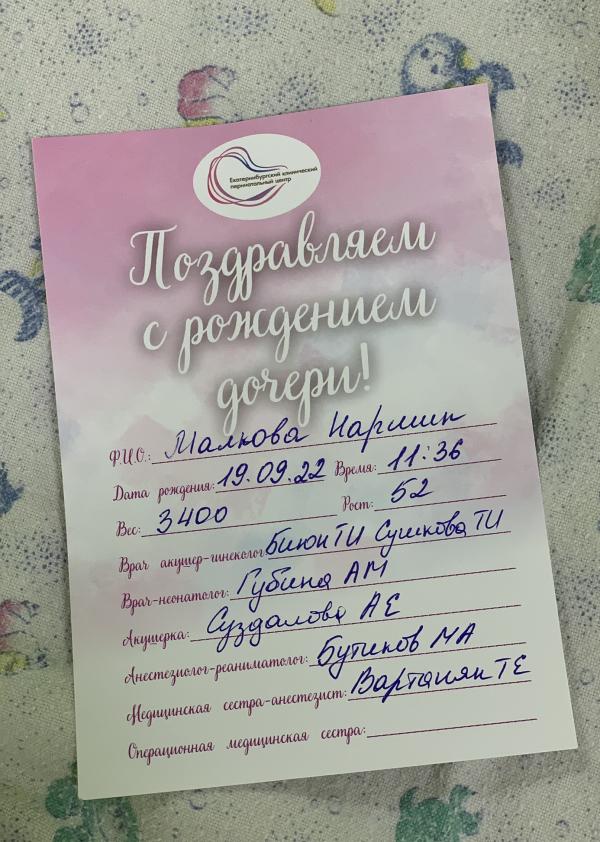 Екатеринбургский клинический
перинатальный центр
Поздравляем
с рождением
дочери!
Ф.И.О.: Малкова Нармин
Дата рождения: 19.09.22 Время: 11:36
Вес: 3400 Рост: 52
Врач акушер-гинеколог ТИ Сушкова ТИ
Врач-неонатолог: Губина АМ
Акушерка: Суздалова АЕ
Анестезиолог-реаниматолог: Бутиков МА
Медицинская сестра-анестезист: Вартанян ТЕ
Операционная медицинская сестра: